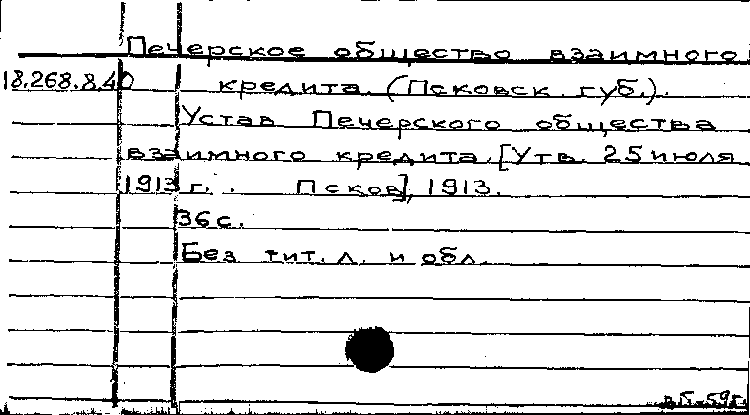 Печерское общество взаимного
18.268.8.40 кредита (Псковск. губ.).
Устав Печерского общества
взаимного кредита. [Утв. 25 июля
1913 г. . Псков], 1913.
36 с.
Без тит. л. и обл.